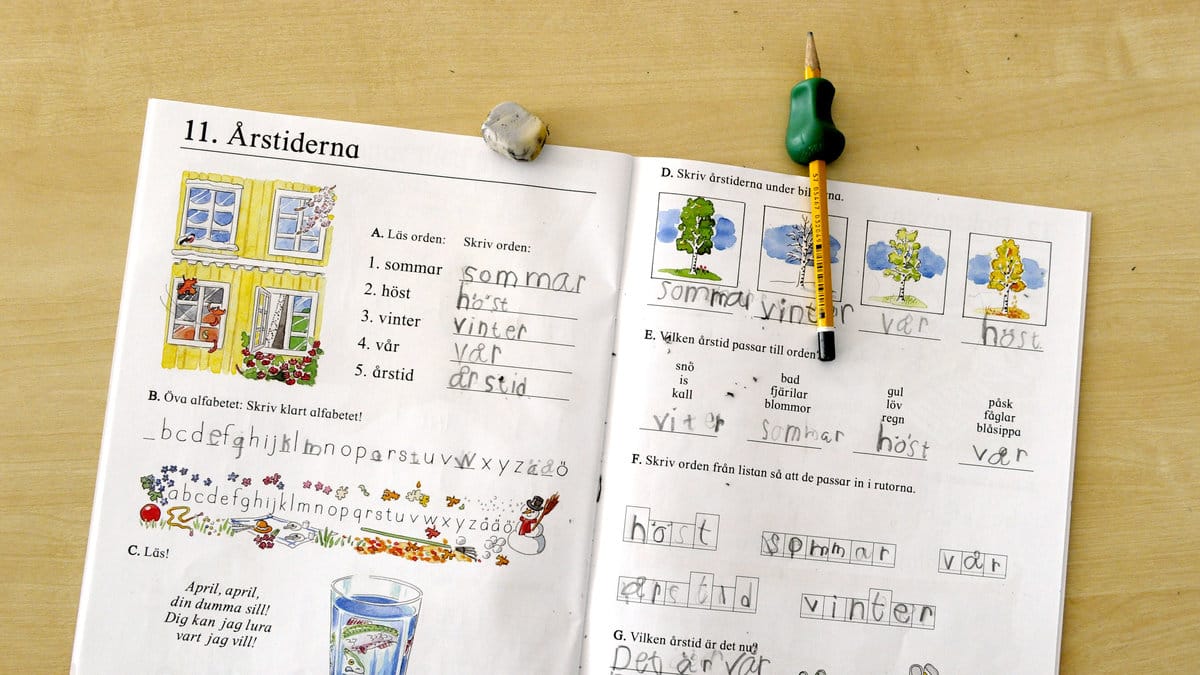 11. Årstiderna
A. Läs orden: Skriv orden:
1. sommar sommar
2. höst höst
3. vinter vinter
4. vår vår
5. årstid årstid
B. Öva alfabetet: Skriv klart alfabetet!
_bcdefghijklmnopqrstuvwxyzåäö
abcdefghijklmnopqrstuvwxyzåäö
C. Läs!
April, april,
din dumma sill!
Dig kan jag lura
vart jag vill!
D. Skriv årstiderna under
sommar vinter vår höst
E. Vilken årstid passar till orden?
snö bad gul påsk
is fjärilar löv fåglar
kall blommor regn blåsippa
viter sommar höst vår
F. Skriv orden från listan så att de passar in i rutorna.
höst sommar vår
årstid vinter
G. Vilken årstid är det nu?
Det är vår